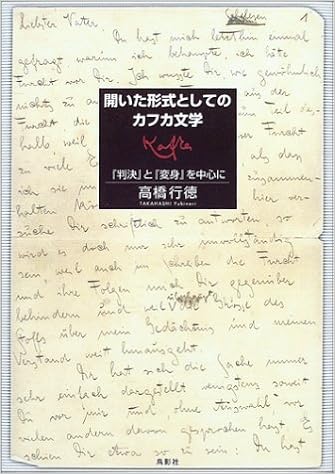 1
Liebster Vater
Du hast mich letzthin einmal
gefragt warum ich behaupte, ich hätte
Furcht vor Dir. Ich wusste Dir, wie gewöhnlich
nichts zu
der
Furcht
halb, weil
zu viel
als
ich
zusammen-
halten
hier ver-
suche Dir schriftlich zu antworten, so
wird es doch nur sehr unvollständig
sein, weil auch im Schreiben die Furcht
und ihre Folgen mich Dir gegenüber
behindern und weil die Grösse des
Stoffs über mein Gedächtnis und meinen
Verstand weit hinausgeht.
Dir hat sich die Sache immer
sehr einfach dargestellt, wenigstens soweit
Du vor mir und, ohne Auswahl vor
vielen andern davon gesprochen hast. Es
schien Dir etwa so zu sein: Du hast
開いた形式としての
カフカ文学
Kafka
『判決』と『変身』を中心に
高橋行徳
TAKAHASHI Yukinori
鳥影社